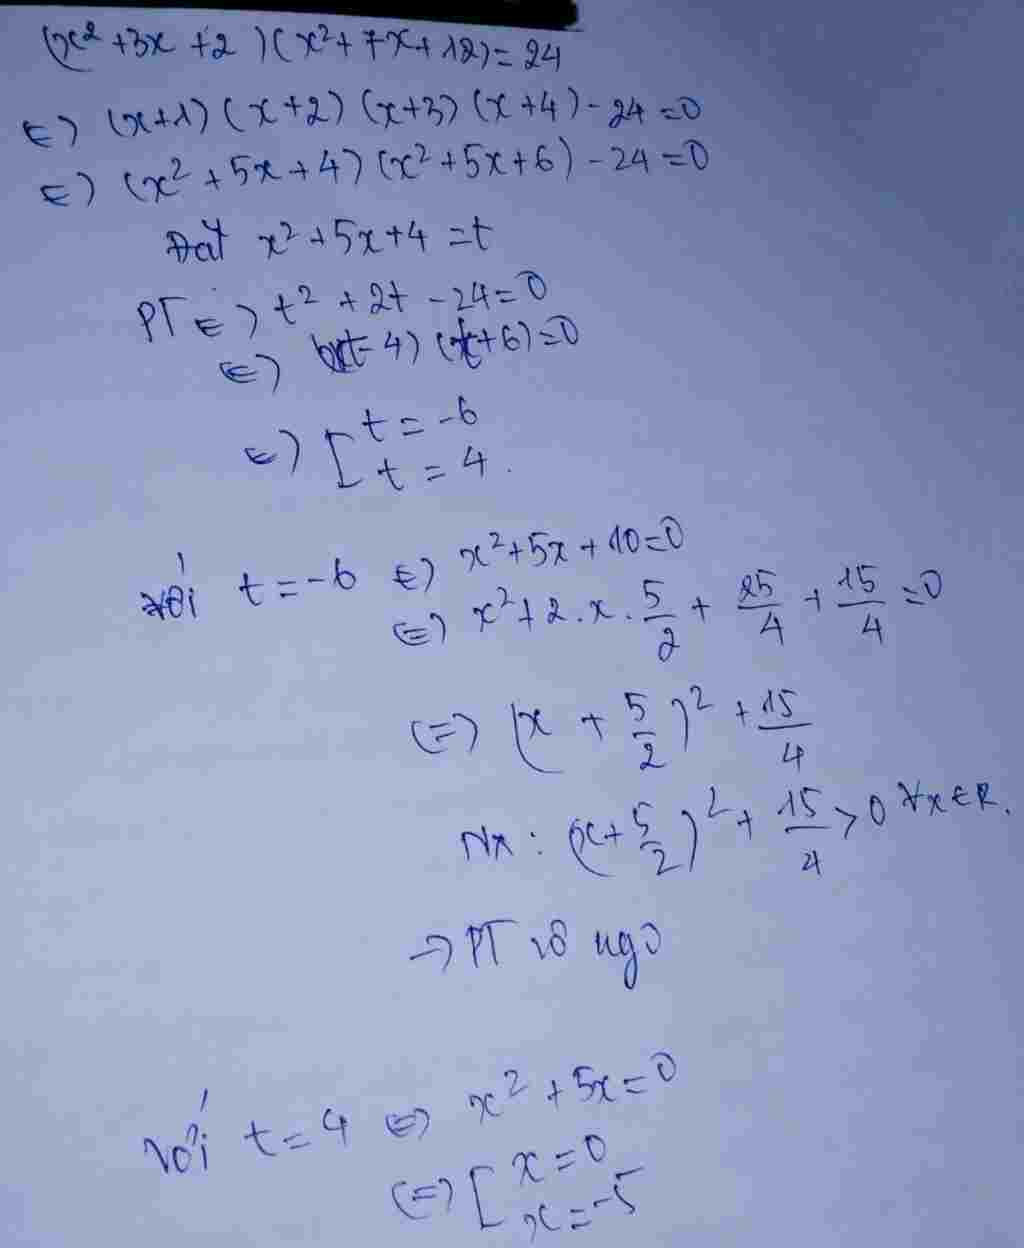 (x² + 3x + 2)(x² + 7x + 12) = 24
⇔ (x+1)(x+2)(x+3)(x+4) - 24 = 0
⇔ (x² + 5x + 4)(x² + 5x + 6) - 24 = 0
Đặt x² + 5x + 4 = t
PT ⇔ t² + 2t - 24 = 0
⇔ (t - 4)(t + 6) = 0
⇔ [ t = -6
t = 4.
với t = -6 ⇔ x² + 5x + 10 = 0
⇔ x² + 2.x.5/2 + 25/4 + 15/4 = 0
⇔ (x + 5/2)² + 15/4
Nx: (x + 5/2)² + 15/4 > 0 ∀x∈R.
→ PT vô ngo
Với t = 4 ⇔ x² + 5x = 0
⇔ [ x = 0
x = -5